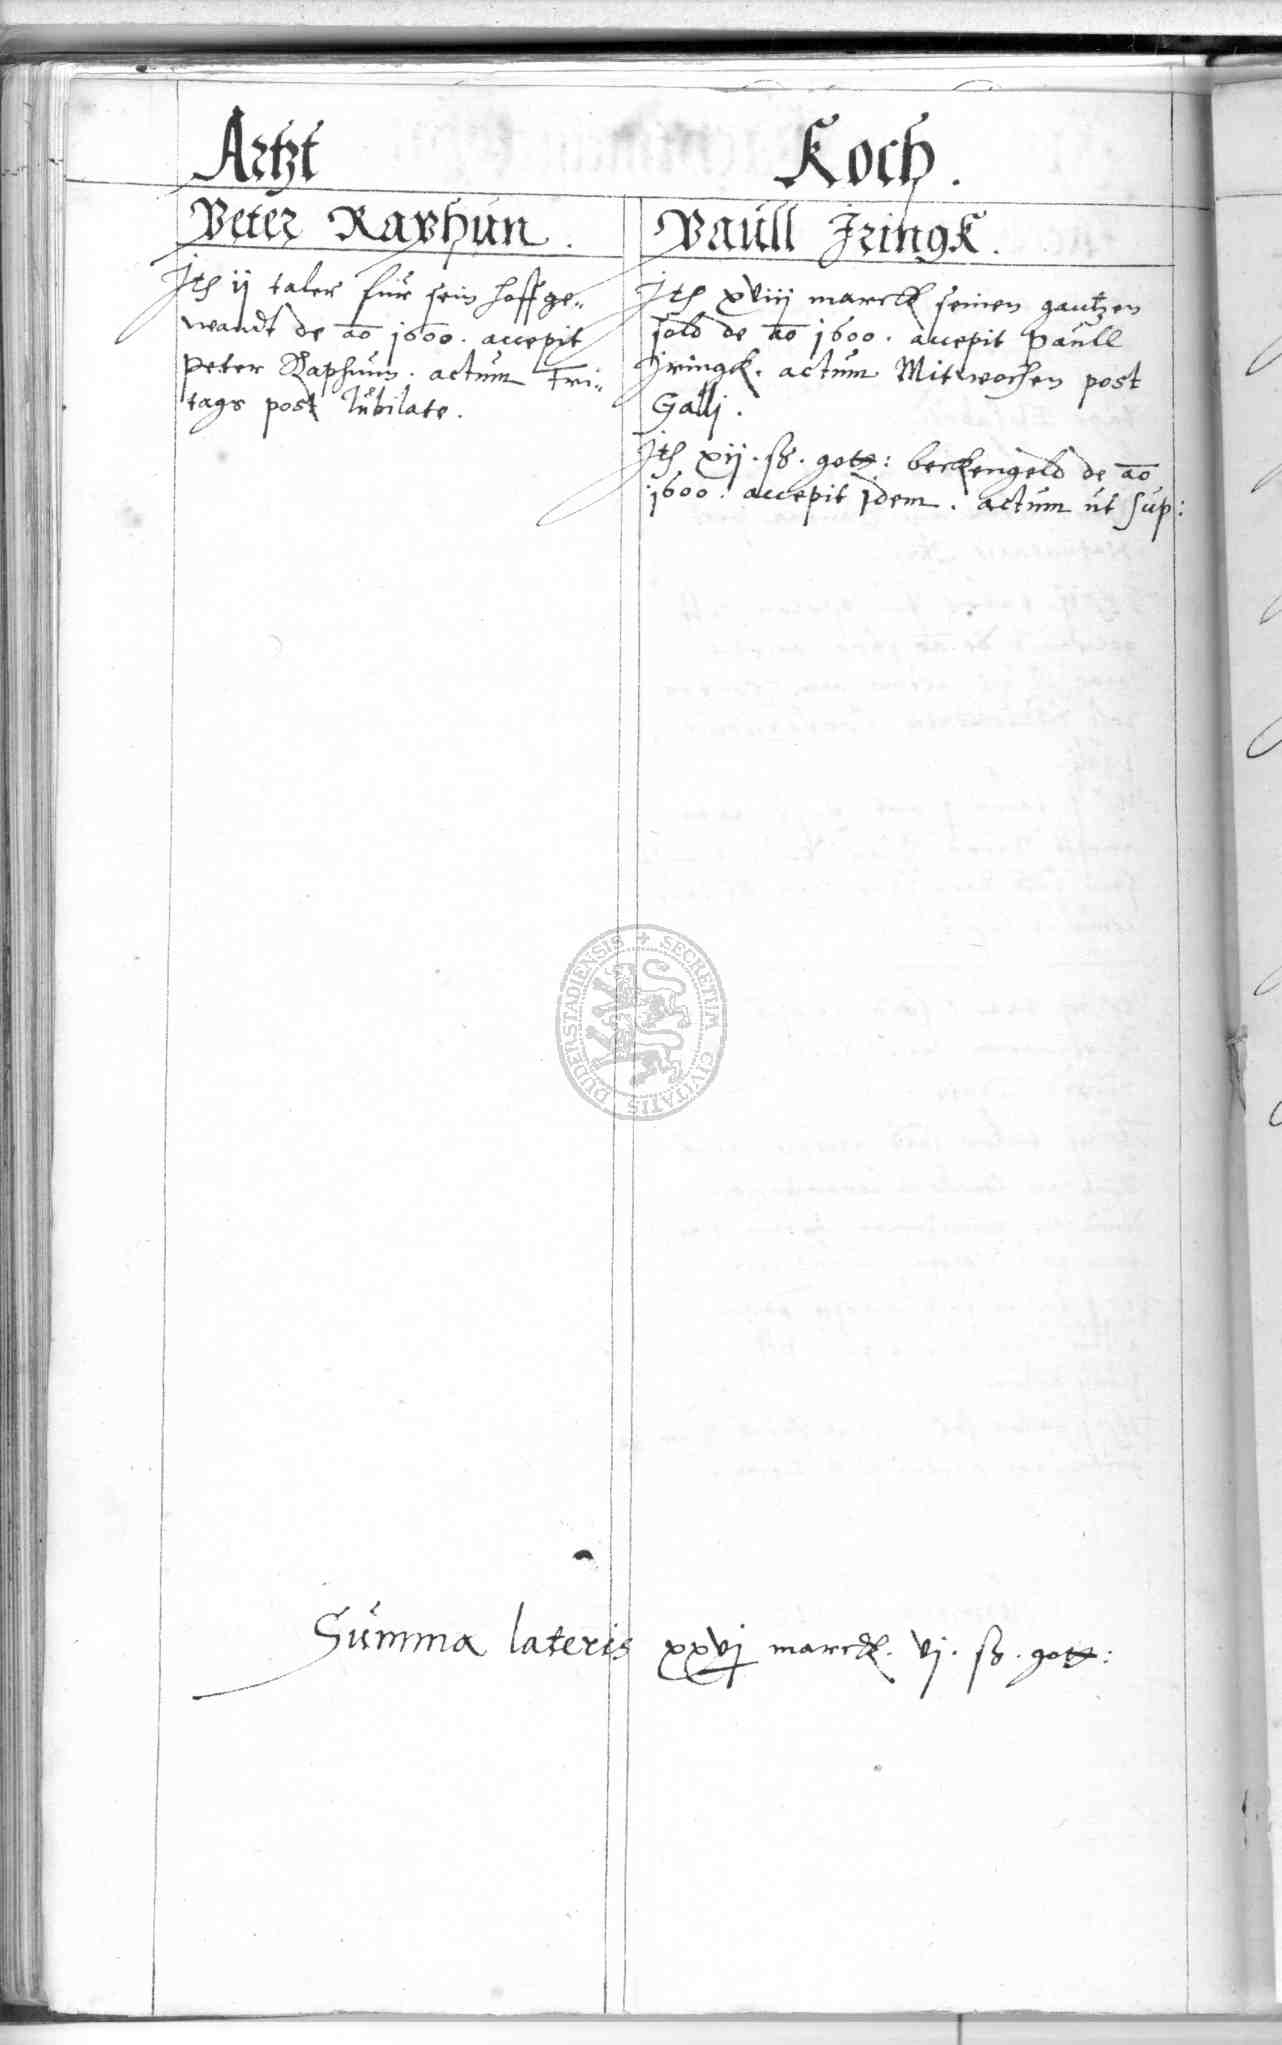 Artzt
Peter Raphun.
Jtem ij taler fuir sein hoffge-
wandt de ao 1600. accepit
Peter Raphuun. actum Fri-
tags post Iubilate.
Koch.
Paull Jringk.
Jtem xviij marck seinen gantzen
sold de ao 1600. accepit Paull
Jringck. actum Mitwochen post
Galli.
Jtem xij. ß. gott: beckengeld de ao
1600. accepit idem. actum ut sup:
DUDERSTADIENSIS SECRETUM CIVITATIS
Summa lateris xxvj marck. vj. ß. gott: